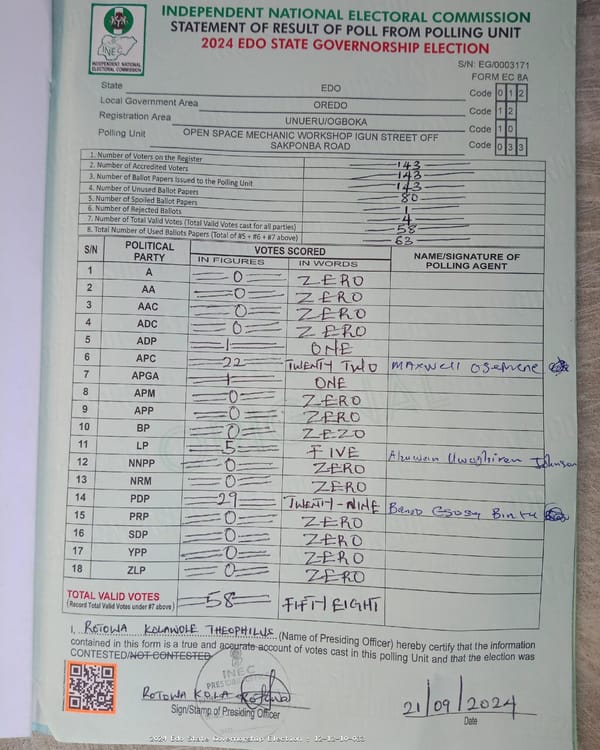 INDEPENDENT NATIONAL ELECTORAL COMMISSION
STATEMENT OF RESULT OF POLL FROM POLLING UNIT
2024 EDO STATE GOVERNORSHIP ELECTION
INEC
INDEPENDENT NATIONAL ELECTORAL COMMISSION
S/N: EG/0003171
FORM EC 8A
State EDO Code 0 1 2
Local Government Area OREDO Code 1 2
Registration Area UNUERU/OGBOKA Code 1 0
Polling Unit OPEN SPACE MECHANIC WORKSHOP IGUN STREET OFF SAKPONBA ROAD Code 0 3 3
1. Number of Voters on the Register 143
2. Number of Accredited Voters 143
3. Number of Ballot Papers Issued to the Polling Unit 143
4. Number of Unused Ballot Papers 80
5. Number of Spoiled Ballot Papers 1
6. Number of Rejected Ballots 4
7. Number of Total Valid Votes (Total Valid Votes cast for all parties) 58
8. Total Number of Used Ballots Papers (Total of #5 + #6 + #7 above) 63
S/N POLITICAL PARTY VOTES SCORED NAME/SIGNATURE OF POLLING AGENT
IN FIGURES IN WORDS
1 A 0 ZERO
2 AA 0 ZERO
3 AAC 0 ZERO
4 ADC 0 ZERO
5 ADP 1 ONE
6 APC 22 TWENTY TWO MAXWELL OSEMENE
7 APGA 1 ONE
8 APM 0 ZERO
9 APP 0 ZERO
10 BP 0 ZEZO
11 LP 5 FIVE Johnson
12 NNPP 0 ZERO
13 NRM 0 ZERO
14 PDP 29 TWENTY-NINE
15 PRP 0 ZERO
16 SDP 0 ZERO
17 YPP 0 ZERO
18 ZLP 0 ZERO
TOTAL VALID VOTES 58 FIFTY EIGHT
(Record Total Valid Votes under #7 above)
I, ROTOWA KOLAWOLE THEOPHILUS (Name of Presiding Officer) hereby certify that the information
contained in this form is a true and accurate account of votes cast in this polling Unit and that the election was
CONTESTED/NOT CONTESTED
INEC
ROTOWA KOLA
Sign/Stamp of Presiding Officer
21/09/2024
Date
2024 Edo State Governorship Election : 12-12-10-033